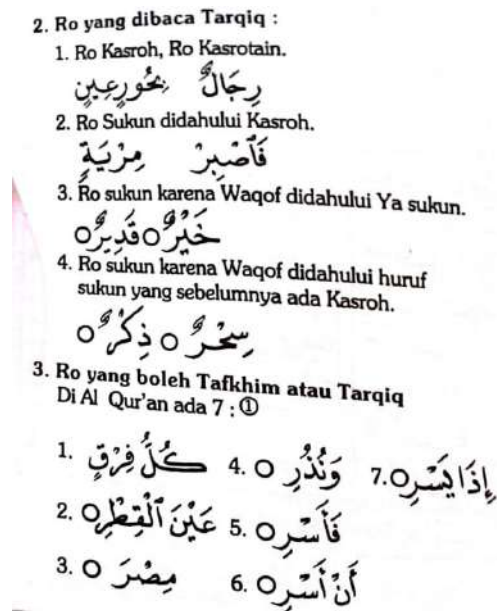 2. Ro yang dibaca Tarqiq :
1. Ro Kasroh, Ro Kasrotain.
رِجَالٌ بِحُورٍعِينٍ
2. Ro Sukun didahului Kasroh.
فَٱصْبِرْ مِرْيَةٍ
3. Ro sukun karena Waqof didahului Ya sukun.
خَيْرٌ○ قَدِيرٌ○
4. Ro sukun karena Waqof didahului huruf
sukun yang sebelumnya ada Kasroh.
سِحْرٌ ○ ذِكْرٌ ○
3. Ro yang boleh Tafkhim atau Tarqiq
Di Al Qur'an ada 7 : ①
1. كُلُّ فِرْقٍ 4. وَنُذُرِ ○ 7. إِذَا يَسْرِ○
2. عَيْنَ ٱلْقِطْرِ○ 5. فَأَسْرِ ○
3. مِصْرَ ○ 6. أَنْ أَسْرِ○